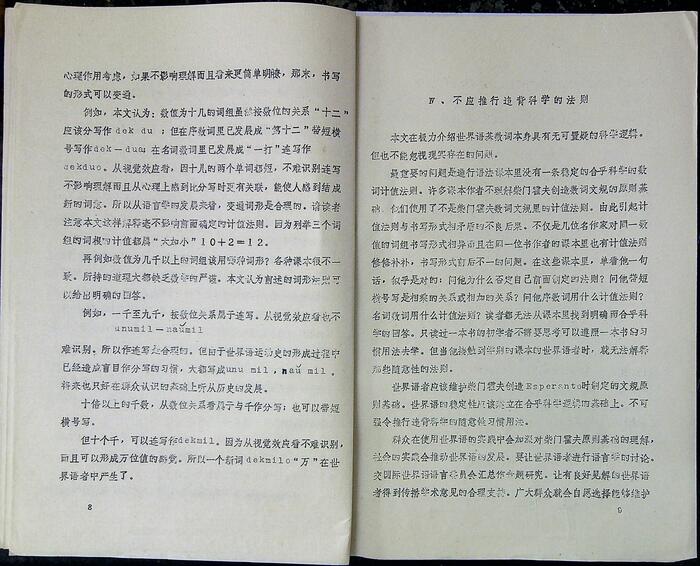 心理作用考虑，如果不影响理解而且看来更简单明瞭，那末，书写
的形式可以变通。
例如，本文认为：数值为十几的词组虽然按数位的关系“十二”
应该分写作dek du；但在序数词里已发展成“第十二”带短横
号写作dek—dua；在名词数词里已发展成“一打”连写作
dekduo。从视觉效应看，因十几的两个单词都短，不难识别连写
不影响理解而且从心理上感到比分写时更有关联，能使人感到结成
新的词意。所以从语言学的发展来看，变通词形是合理的。请读者
注意本文这样解释毫不影响前面确定的计值法则。因为列举三个词
组的词根的计值都属“大加小”10+2=12。
再例如数值为几千以上的词组该用哪种词形？各种课本很不一
致。所持的道理大都缺乏数学的严谨。本文认为前述的词形法则可
以给出明确的回答。
例如，一千至九千，按数位关系属于连写。从视觉效应看也不
unumil—naŭmil
难识别。所以作连写是合理的。但由于世界语运动史的形成过程中
已经造成盲目作分写的习惯，大都写成unu mil，naŭ mil。
将来也只好在群众认识的基础上听从历史的发展。
十倍以上的千数，从数位关系看属于与千作分写；也可以带短
横号写。
但十个千，可以连写作dekmil。因为从视觉效应看不难识别，
而且可以形成万位值的感觉。所以一个新词dekmilo“万”在世
界语者中产生了。
8
Ⅳ、不应推行违背科学的法则
本文在极力介绍世界语英数词本身具有无可置疑的科学逻辑。
但也不能忽视现实存在的问题。
最重要的问题是通行语法课本里没有一条稳定的合乎科学的数
词计值法则。许多课本作者不理解柴门霍夫创造数词文规的原则基
础。他们使用了不是柴门霍夫数词文规里的计值法则。由此引起计
值法则与书写形式相矛盾的不良后果。不仅是几位名作家对同一数
值的词组书写形式相异而且在同一位书作者的课本里也有计值法则
修修补补，书写形式前后不一的问题。在这些课本里，单看他一句
话，似乎是对的；问他为什么否定自己前面制定的法则？问他带短
横号写是相乘的关系或相加的关系？问他序数词用什么计值法则？
名词数词用什么计值法则？读者都无法从课本里找到明确而合乎科
学的回答。只读过一本书的初学者不需要思考可以遵照一本书的习
惯用法去学。但当他接触到学别的课本的世界语者时，就无法解释
那些随意性的法则。
世界语者应该维护柴门霍夫创造Esperanto时制定的文规原
则基础。世界语的稳定性应该建立在合乎科学逻辑的基础上。不可
强令推行违背科学的随意性习惯用法。
群众在使用世界语的实践中会加深对柴门霍夫原则基础的理解，
社会的实践会推动世界语的发展。要让世界语者进行语言学的讨论。
交国际世界语语言委员会汇总作专题研究。让有良好见解的世界语
者得到传播学术意见的合理支持。广大群众就会自愿选择能够维护
9